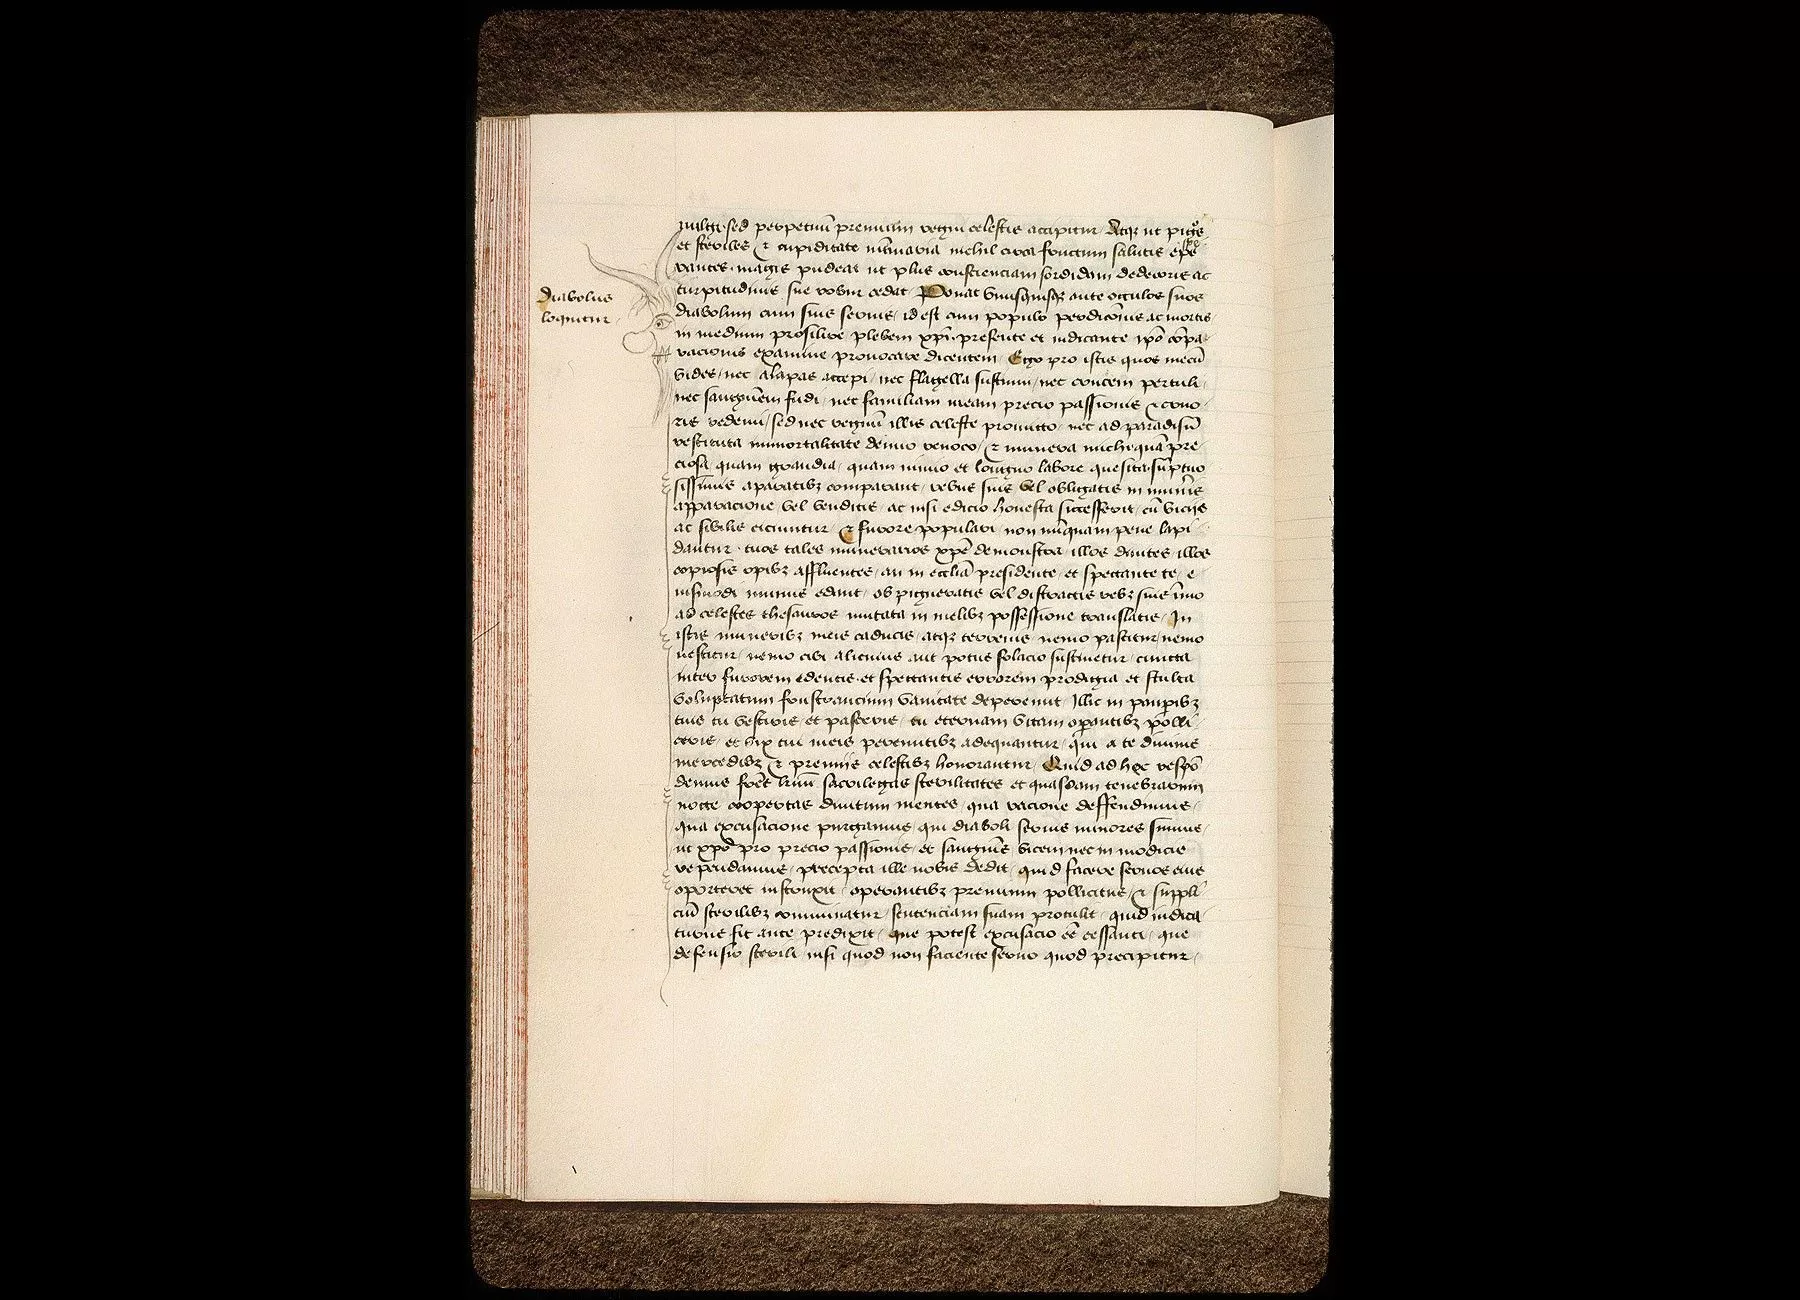 vulgi. sed perpetuū premium regni celestis accipitur. Atqꝫ ut pigꝰs
et steriles ⁊ cupiditate nūmaria nichil circa fructum salutis
rantes. magis pudeat ut plus conscienciam sordidam dedecoris ac
turpitudinis sue rubor cedat. Ponat vnusquisqꝫ ante occulos suos
diabolus
diabolum cum suis seruis, id est cum populo perdicōnis ac mortis.
loquitur.
in medium prosilire plebem xp̄i. presente et iudicante ip̄o cōpa
racionis examine prouocare dicentem. Ego pro istis quos mecū
vides, nec alapas accepi, nec flagella sustinui, nec crucem pertuli.
nec sanguīem fudi, nec familiam meam precio passionis ⁊ cruo
ris redemi, sed nec regnū illis celeste promitto, nec ad paradisū
restituta immortalitate denuo reuoco, ⁊ munera michi quā pre
ciosa, quam grandia, quam nimio et longuo labore quesita sūptuo
sissimis aparatibꝫ comparant, rebus suis vel obligatis in mun̄is
apparacione vel venditis, ac nisi edicio honesta successerit, cū vicijs
ac sibilis eiciuntur, ⁊ furore populari, non nūquam pene lapi
dantur. tuos tales munerarios xp̄e demonstra, illos diuites, illos
copiosis opibꝫ affluentes, an in eccl̄ia presidente, et spectante te, e
iusmodi munus edant, ob pigneratis vel distractis rebꝫ suis īmo
ad celestes thesauros mutata in melibꝫ possessione translatis. In
istis muneribꝫ meis caducis, atqꝫ terrenis, nemo pascitur, nemo
uestitur, nemo cibi alicuius aut potus solacio sustinetur, cuncta
inter furorem edentis. et spectantis errorem prodigia et stulta
voluptatum frustrancium vanitate depereunt, Illic in paupibꝫ
tuis tu vestiris, et pasceris, tu eternam vitam oꝑantibꝫ polli
ceris, et vix tui meis pereuntibꝫ adequantur, qui a te diuinis
mercedibꝫ ⁊ premiis celestibꝫ honorantur. Quid ad hec respō
demus sacrilegas sterilitates et quasdam tenebrarum
nocte coopertas diuitum mentes, qua racione deffendimus,
qua excusacione purgamus, qui diaboli seruis minores sumus,
ut xp̄o pro precio passionis, et sanguīs vicem nec in modicis
rependamus, precepta ille nobis dedit, quid facere seruos eius
oporteret instruxit, operantibꝫ premium pollicitus, ⁊ suppli
ciū sterilibꝫ comminatur, sentenciam suam protulit, quid iudica
turus sit ante predixit, que potest excusacio eē cessanti, que
defensio sterili nisi quod non faciente seruo quod precipitur,